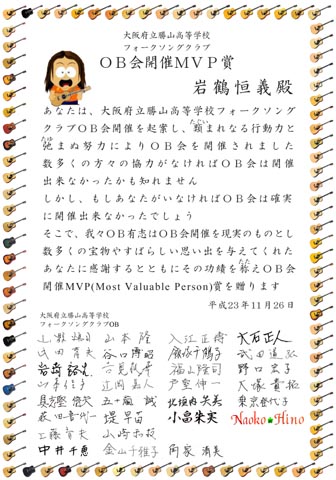 大阪府立勝山高等学校
フォークソングクラブ
OB会開催MVP賞
岩鶴恒義殿
あなたは、大阪府立勝山高等学校フォークソング
クラブOB会開催を起案し、類まれなる行動力と
たぐい
弛まぬ努力によりOB会を開催されました
たゆ
数多くの方々の協力がなければOB会は開催
出来なかったかも知れません
しかし、もしあなたがいなければOB会は確実
に開催出来なかったでしょう
そこで、我々OB有志はOB会開催を現実のものとし
数多くの宝物やすばらしい思い出を与えてくれた
あなたに感謝するとともにその功績を称えOB会
たた
開催MVP(Most Valuable Person)賞を贈ります
平成23年11月26日
大阪府立勝山高等学校
フォークソングクラブOB
山本 隆 入江正博 大石正人
谷口博昭 武田道弘
福山隆司 野口宏子
辻岡美人 戸室伸一 大塚貴拡
五十嵐誠 北垣内英美 東京登代子
萩田喜代司 堤早苗 小畠朱実 Naoko Hino
工藤智夫
中井千恵 金山千雅子 角家清美